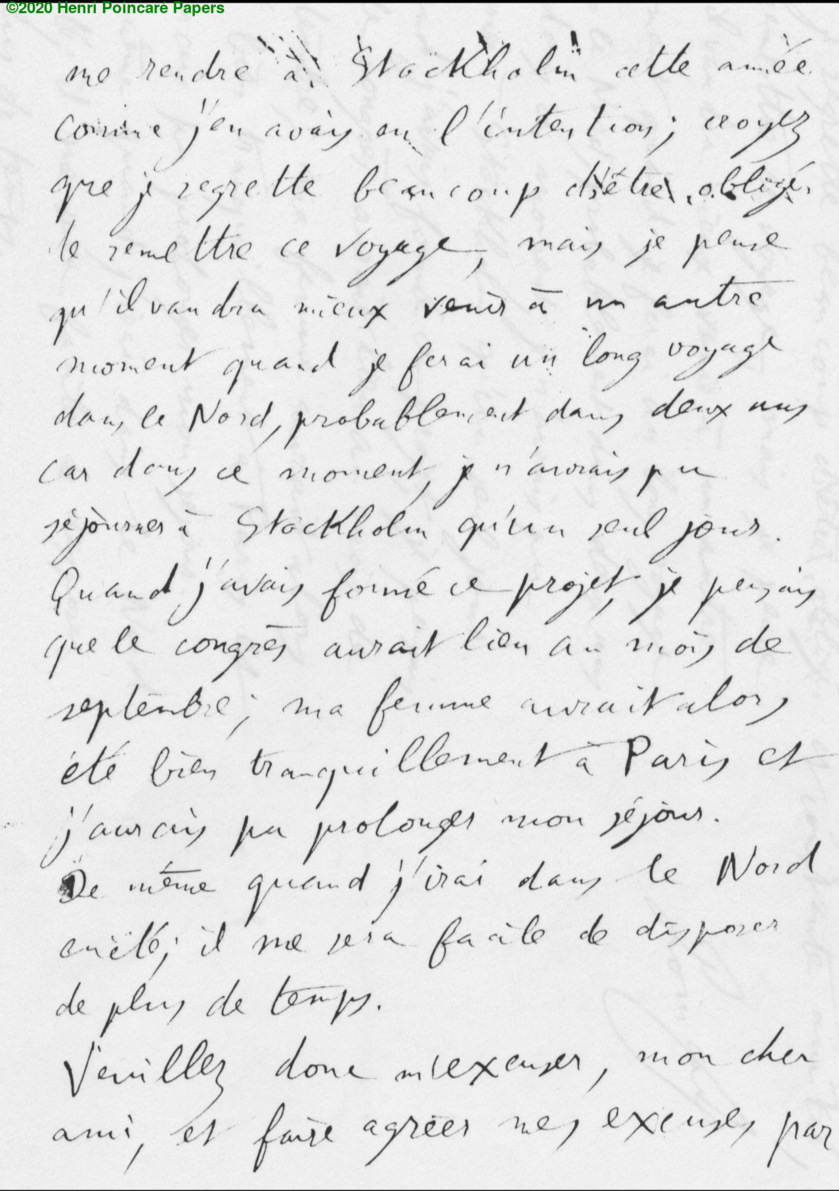 ©2020 Henri Poincaré Papers
me rendre à Stockholm cette année
comme j'en avais eu l'intention; croyez
que je regrette beaucoup d'être obligé
de remettre ce voyage, mais je pense
qu'il vaudra mieux venir à un autre
moment quand je ferai un long voyage
dans le Nord, probablement dans deux ans
car dans ce moment, je n'aurais pu
séjourner à Stockholm qu'un seul jour.
Quand j'avais formé ce projet, je pensais
que le congrès aurait lieu au mois de
septembre; ma femme aurait alors
été bien tranquillement à Paris et
j'aurais pu prolonger mon séjour.
De même quand j'irai dans le Nord
en été; il me sera facile de disposer
de plus de temps.
Veuillez donc m'excuser, mon cher
ami, et faire agréer mes excuses par